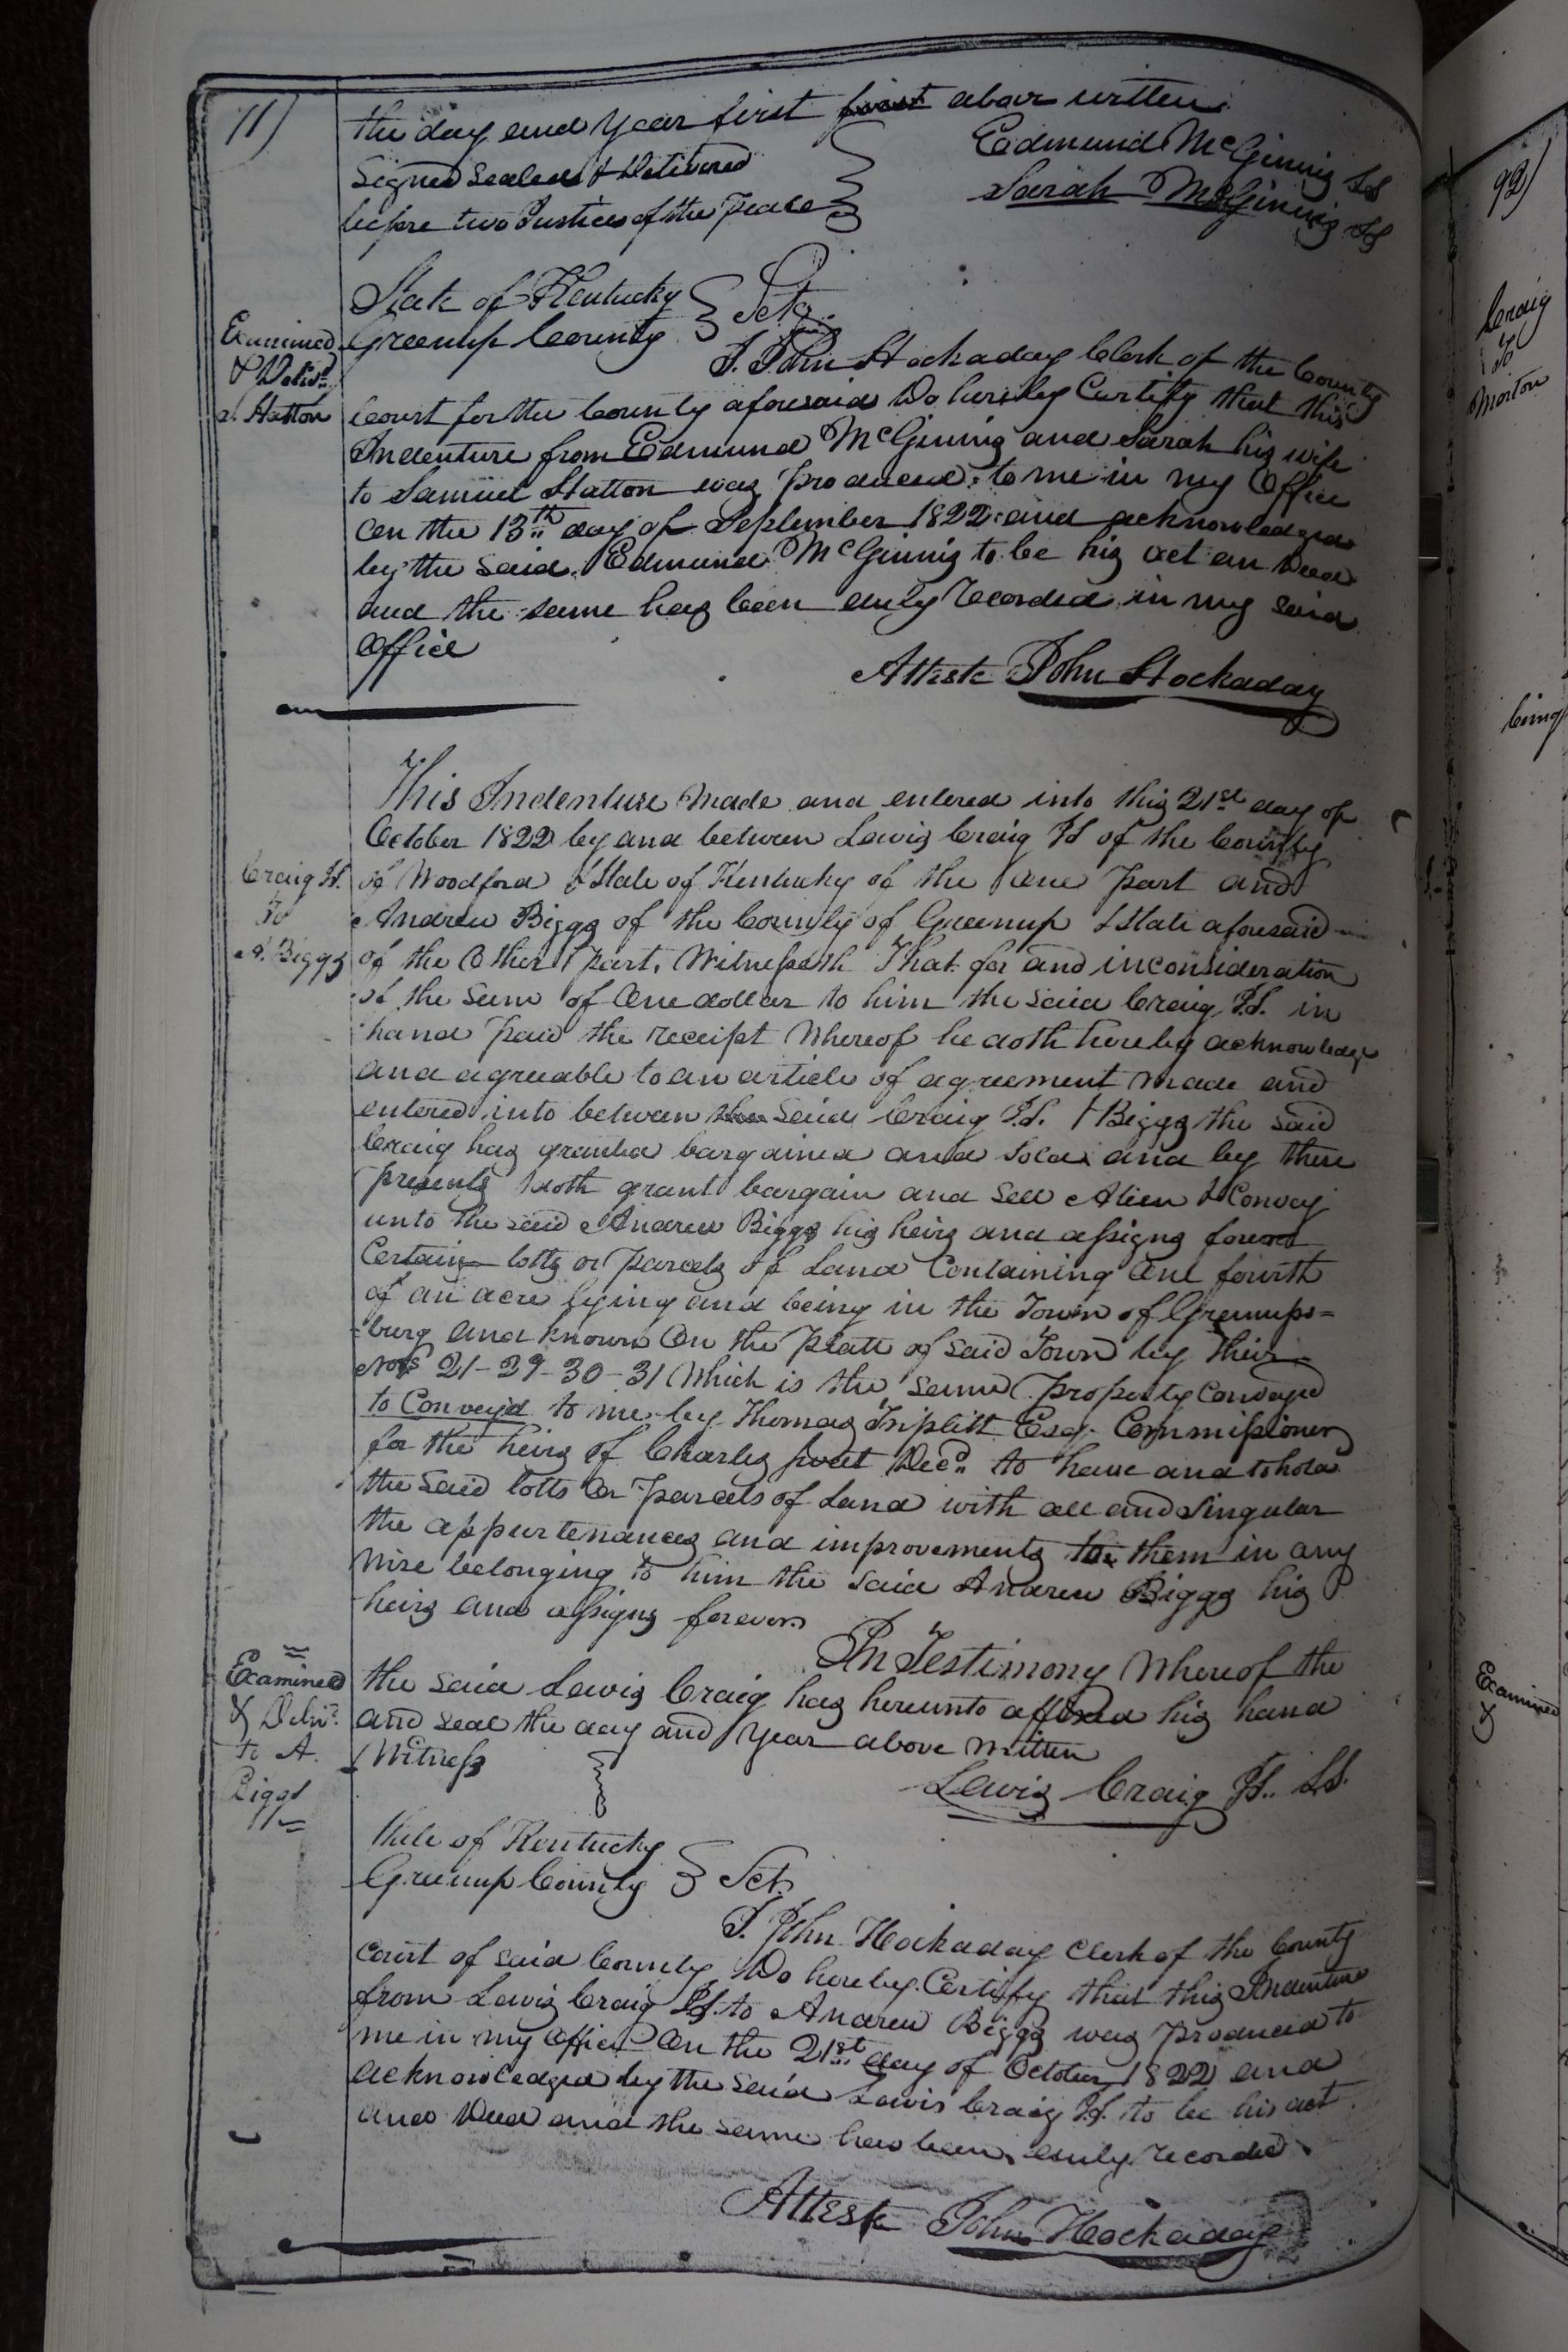 11)
the day and Year first first abov written
Signed Sealed & Delivered
before two Justices of the peace
Edmund McGinnis LS
Sarah McGinnis LS
State of Kentucky
Greenup County
Sct.
Examined
& Delivd
S. Hatton
I. John Hockaday Clerk of the County
Court for the County aforesaid Do hereby Certify that this
Indenture from Edmund McGinnis and Sarah his wife
to Samuel Hatton was produced to me in my Office
on the 13th day of September 1822 and acknowledged
by the said Edmund McGinnis to be his act an Deed
and the same has been duly recorded in my said
office
Atteste John Hockaday
This Indenture Made and entered into this 21st day of
October 1822 by and between Lewis Craig Jd of the County
Craig Jd.
To
A. Biggs
of Woodford & State of Kentucky of the one part and
Andrew Biggs of the County of Greenup & State aforesaid
of the Other part, Witnesseth That for and inconsideration
of the Sum of One dollar to him the said Craig Jd. in
hand paid the receipt Whereof he doth hereby acknowledge
and agreeable to an article of agreement made and
entered into between the said Craig Jd. & Biggs the said
Craig has granted bargained and sold and by these
presents doth grant bargain and sell Alien & Convey
unto the said Andrew Biggs his heirs and assigns forever
Certain lotts or parcels of Land Containing One fourth
of an acre lying and being in the Town of Greenups=
=burg and known On the platt of said Town by their
Nos 21-29-30-31 Which is the same property Conveyed
to Conveyd to me by Thomas Triplett Esq. Commissioner
for the heirs of Charles Decd. to have and to hold
the said lotts Or parcels of Land with all and Singular
the appurtenances and improvements to them in any
wise belonging to him the said Andrew Biggs his
heirs and assigns forever
In Testimony Whereof the
Examined
& Delivd
to A.
Biggs
the said Lewis Craig has hereunto affixed his hand
and seal the day and Year above Written
Witness
Lewis Craig Jd. LS.
State of Kentucky
Greenup County
Sct.
I. John Hockaday Clerk of the County
Court of said County Do hereby Certify that this Indenture
from Lewis Craig Jd. to Andrew Biggs was produced to
me in my Office On the 21st day of October 1822 and
acknowledged by the said Lewis Craig Jd. to be his act
and Deed and the same has been duly recorded
Atteste John Hockaday
92)
Craig
To
Morton
being
Examined
&